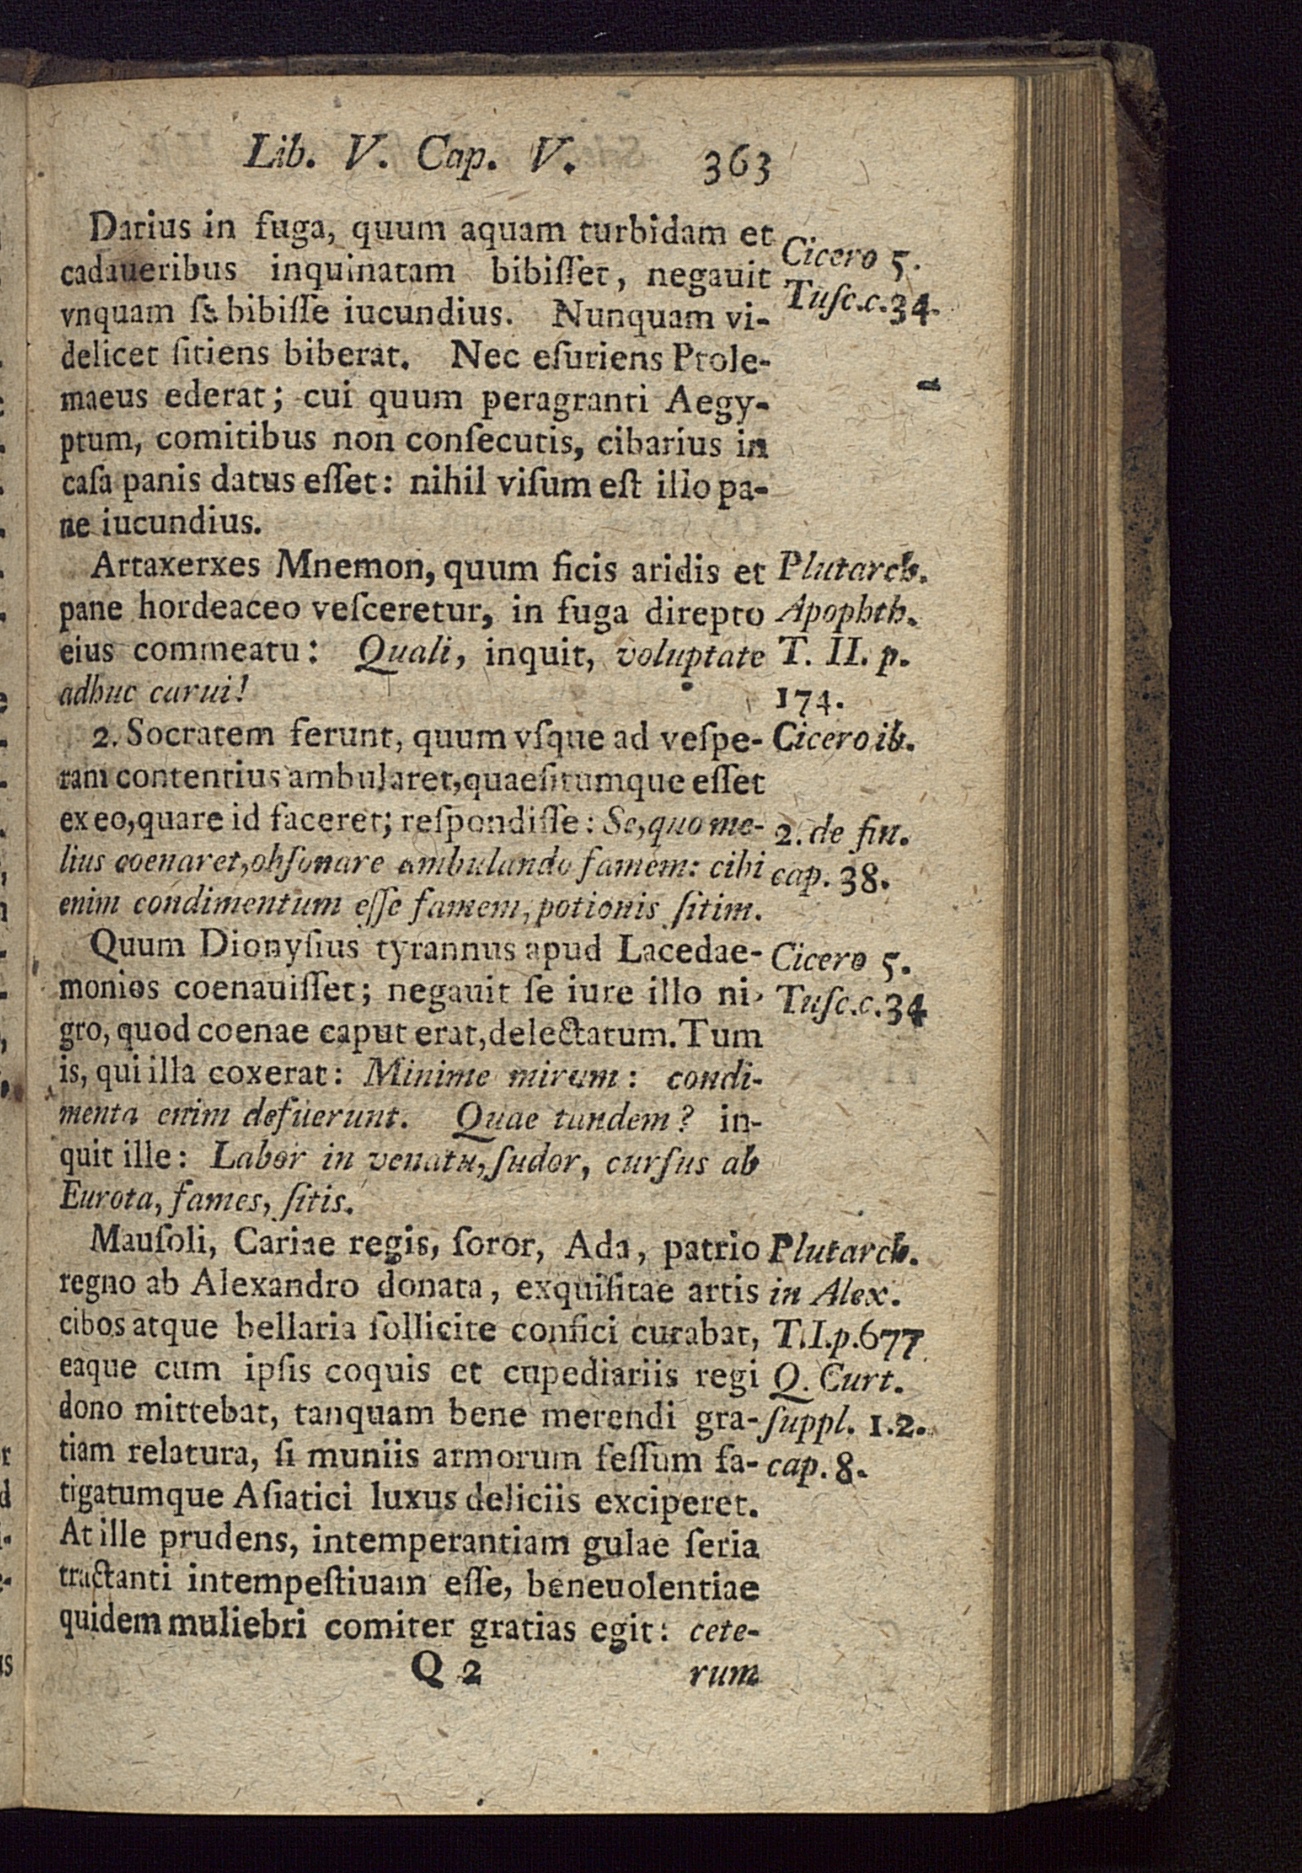 Lib. V. Cap. V. 363
Darius in fuga, quum aquam turbidam et
cadaueribus inquinatam bibiſſet, negauit
vnquam ſe bibiſſe iucundius. Nunquam vi-
delicet ſitiens biberat. Nec eſuriens Ptole-
maeus ederat; cui quum peragranti Aegy-
ptum, comitibus non conſecutis, cibarius in
caſa panis datus eſſet: nihil viſum eſt illo pa-
ne iucundius.
Cicero 5.
Tuſc.c.34.
Artaxerxes Mnemon, quum ficis aridis et
pane hordeaceo veſceretur, in fuga direpto
eius commeatu: Quali, inquit, voluptate
adhuc carui!
Plutarch.
Apophth.
T. II. p.
174.
2. Socratem ferunt, quum vſque ad veſpe-
ram contentius ambularet, quaeſitumque eſſet
ex eo, quare id faceret; reſpondiſſe: Se, quo me-
lius coenaret, obſonare ambulando famem: cibi
enim condimentum eſſe famem, potionis ſitim.
Cicero ib.
2. de fin.
cap. 38.
Quum Dionyſius tyrannus apud Lacedae-
monios coenauiſſet; negauit ſe iure illo ni-
gro, quod coenae caput erat, delectatum. Tum
is, qui illa coxerat: Minime mirum: condi-
menta enim defuerunt. Quae tandem? in-
quit ille: Labor in venatu, ſudor, curſus ab
Eurota, fames, ſitis.
Cicero 5.
Tuſc.c.34
Mauſoli, Cariae regis, ſoror, Ada, patrio
regno ab Alexandro donata, exquiſitae artis
cibos atque bellaria ſollicite confici curabat,
eaque cum ipſis coquis et cupediariis regi
dono mittebat, tanquam bene merendi gra-
tiam relatura, ſi muniis armorum feſſum fa-
tigatumque Aſiatici luxus deliciis exciperet.
At ille prudens, intemperantiam gulae ſeria
tractanti intempeſtiuam eſſe, beneuolentiae
quidem muliebri comiter gratias egit: cete-
Plutarch.
in Alex.
T.I.p.677
Q. Curt.
ſuppl. 1.2.
cap. 8.
Q 2 rum